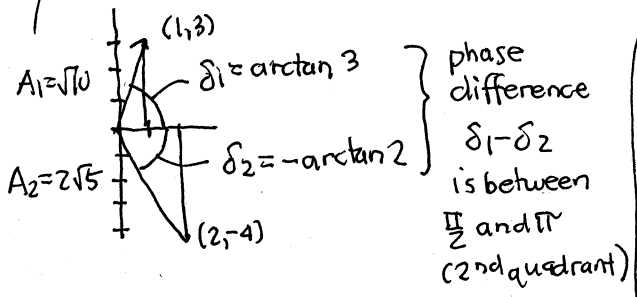 (1,3)
A₁=√10
δ₁=arctan 3
A₂=2√5
δ₂=-arctan2
(2,-4)
phase
difference
δ₁-δ₂
is between
π/2 and π
(2nd quadrant)